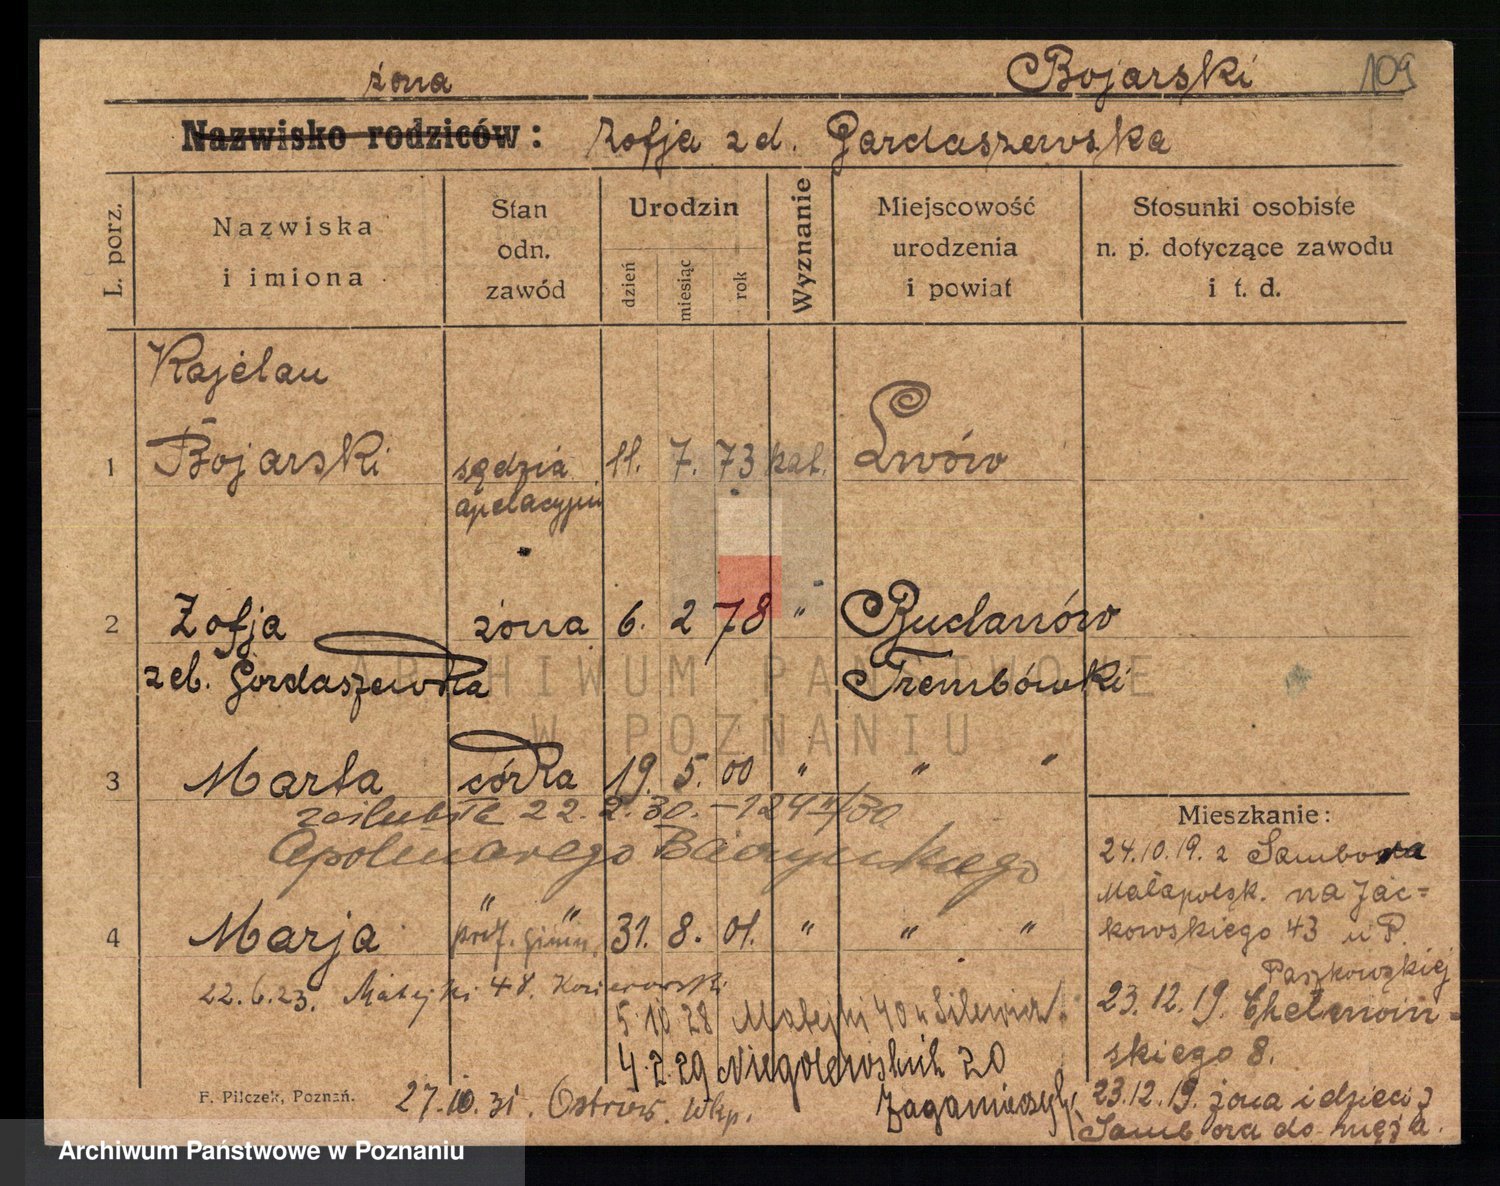 żona Bojarski 109
Nazwisko rodziców: Zofja z d. Gardaszewska
L. porz.
Nazwiska
i imiona
Stan
odn.
zawód
Urodzin
dzień
miesiąc
rok
Wyznanie
Miejscowość
urodzenia
i powiat
Stosunki osobiste
n. p. dotyczące zawodu
i t. d.
Kajetan
1 Bojarski sędzia 11. 7. 73 kat. Lwów
apelacyjn
2 Zofja żona 6. 2 78 " Budanów
z eb. Gordaszewska Trembówki
ARCHIWUM PAŃSTWOWE
W POZNANIU
3 Marta córka 19. 5. 00 " " "
zaślubiła 22. 2. 30. – 124 II/30
Apolinarego
Mieszkanie:
24.10.19. z Sambora
Małapolsk. na Jac=
kowskiego 43 u P.
Paszkowskiej
" "
4 Marja prof. gimn. 31. 8. 01. " " "
22.6.23. Matejki 48.
23.12.19. Chełmoiń=
skiego 8.
5.10.28 Matejki 40 u
4.2.29 Niegolewskich 20
23.12.19. żona i dzieci z
Sambora do męża.
F. Pilczek, Poznań.
27.10.31. Ostrów. Wlkp.
Archiwum Państwowe w Poznaniu